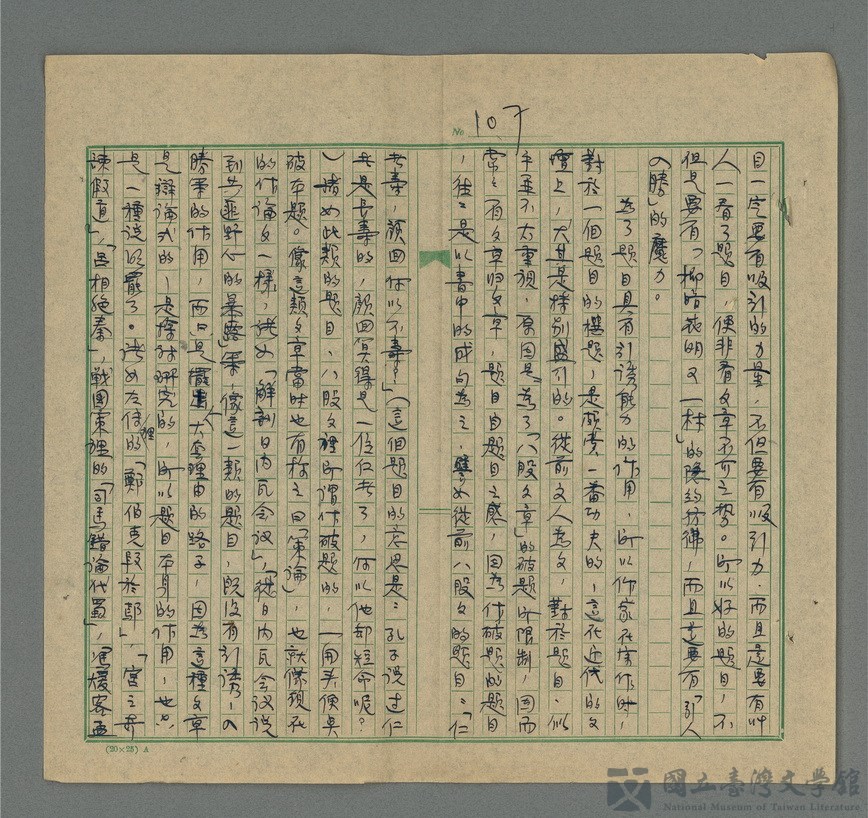 No 107
目一定要有吸引的力量，不但要有吸引力，而且是要有叫
人一看了題目，便非看文章不可之勢。所以好的題目，不
但是要有「柳暗花明又一村」的隱約彷彿，而且並要有「引人
入勝」的魔力。
為了題目具有引誘能力的作用，所以作家在寫作時，
對於一個題目的標題，是頗費一番功夫的，這在近代的文
壇上，尤其是特別盛行的。從前文人為文，對於題目，似
乎並不太重視，原因是為了「八股文章」的破題所限制，因而
常々有文章歸文章，題目自題目之感，因為作破題的題目
，往々是以書中的成句為主，譬如從前八股文的題目：「仁
者壽，顏回何以不壽？」（這個題目的意思是：孔子說过仁
者是長壽的，顏回算得是一位仁者了，何以他却短命呢？
）諸如此類的題目，八股文裡所謂作破題的，一開头便是
破本題。像這類文章當时也有称之曰「策論」，也就像現在
的作論文一樣，諸如「解剖日內瓦会议」，「從日內瓦会议說
到共匪野心的暴露」等，像這一類的題目，旣沒有引誘，入
勝等的作用，而只是 大套理由的路子，因為這種文章
是辯論式的，是探討研究的，所以題目本身的作用，也只
是一種說明罷了。諸如左傳裡的「鄭伯克段於鄢」，「宮之奇
諫假道」，「呂相絕秦」，戰國策裡的「司馬錯論伐蜀」，「馮煖客孟
(20×25) A
國立臺灣文學館
National Museum of Taiwan Literature